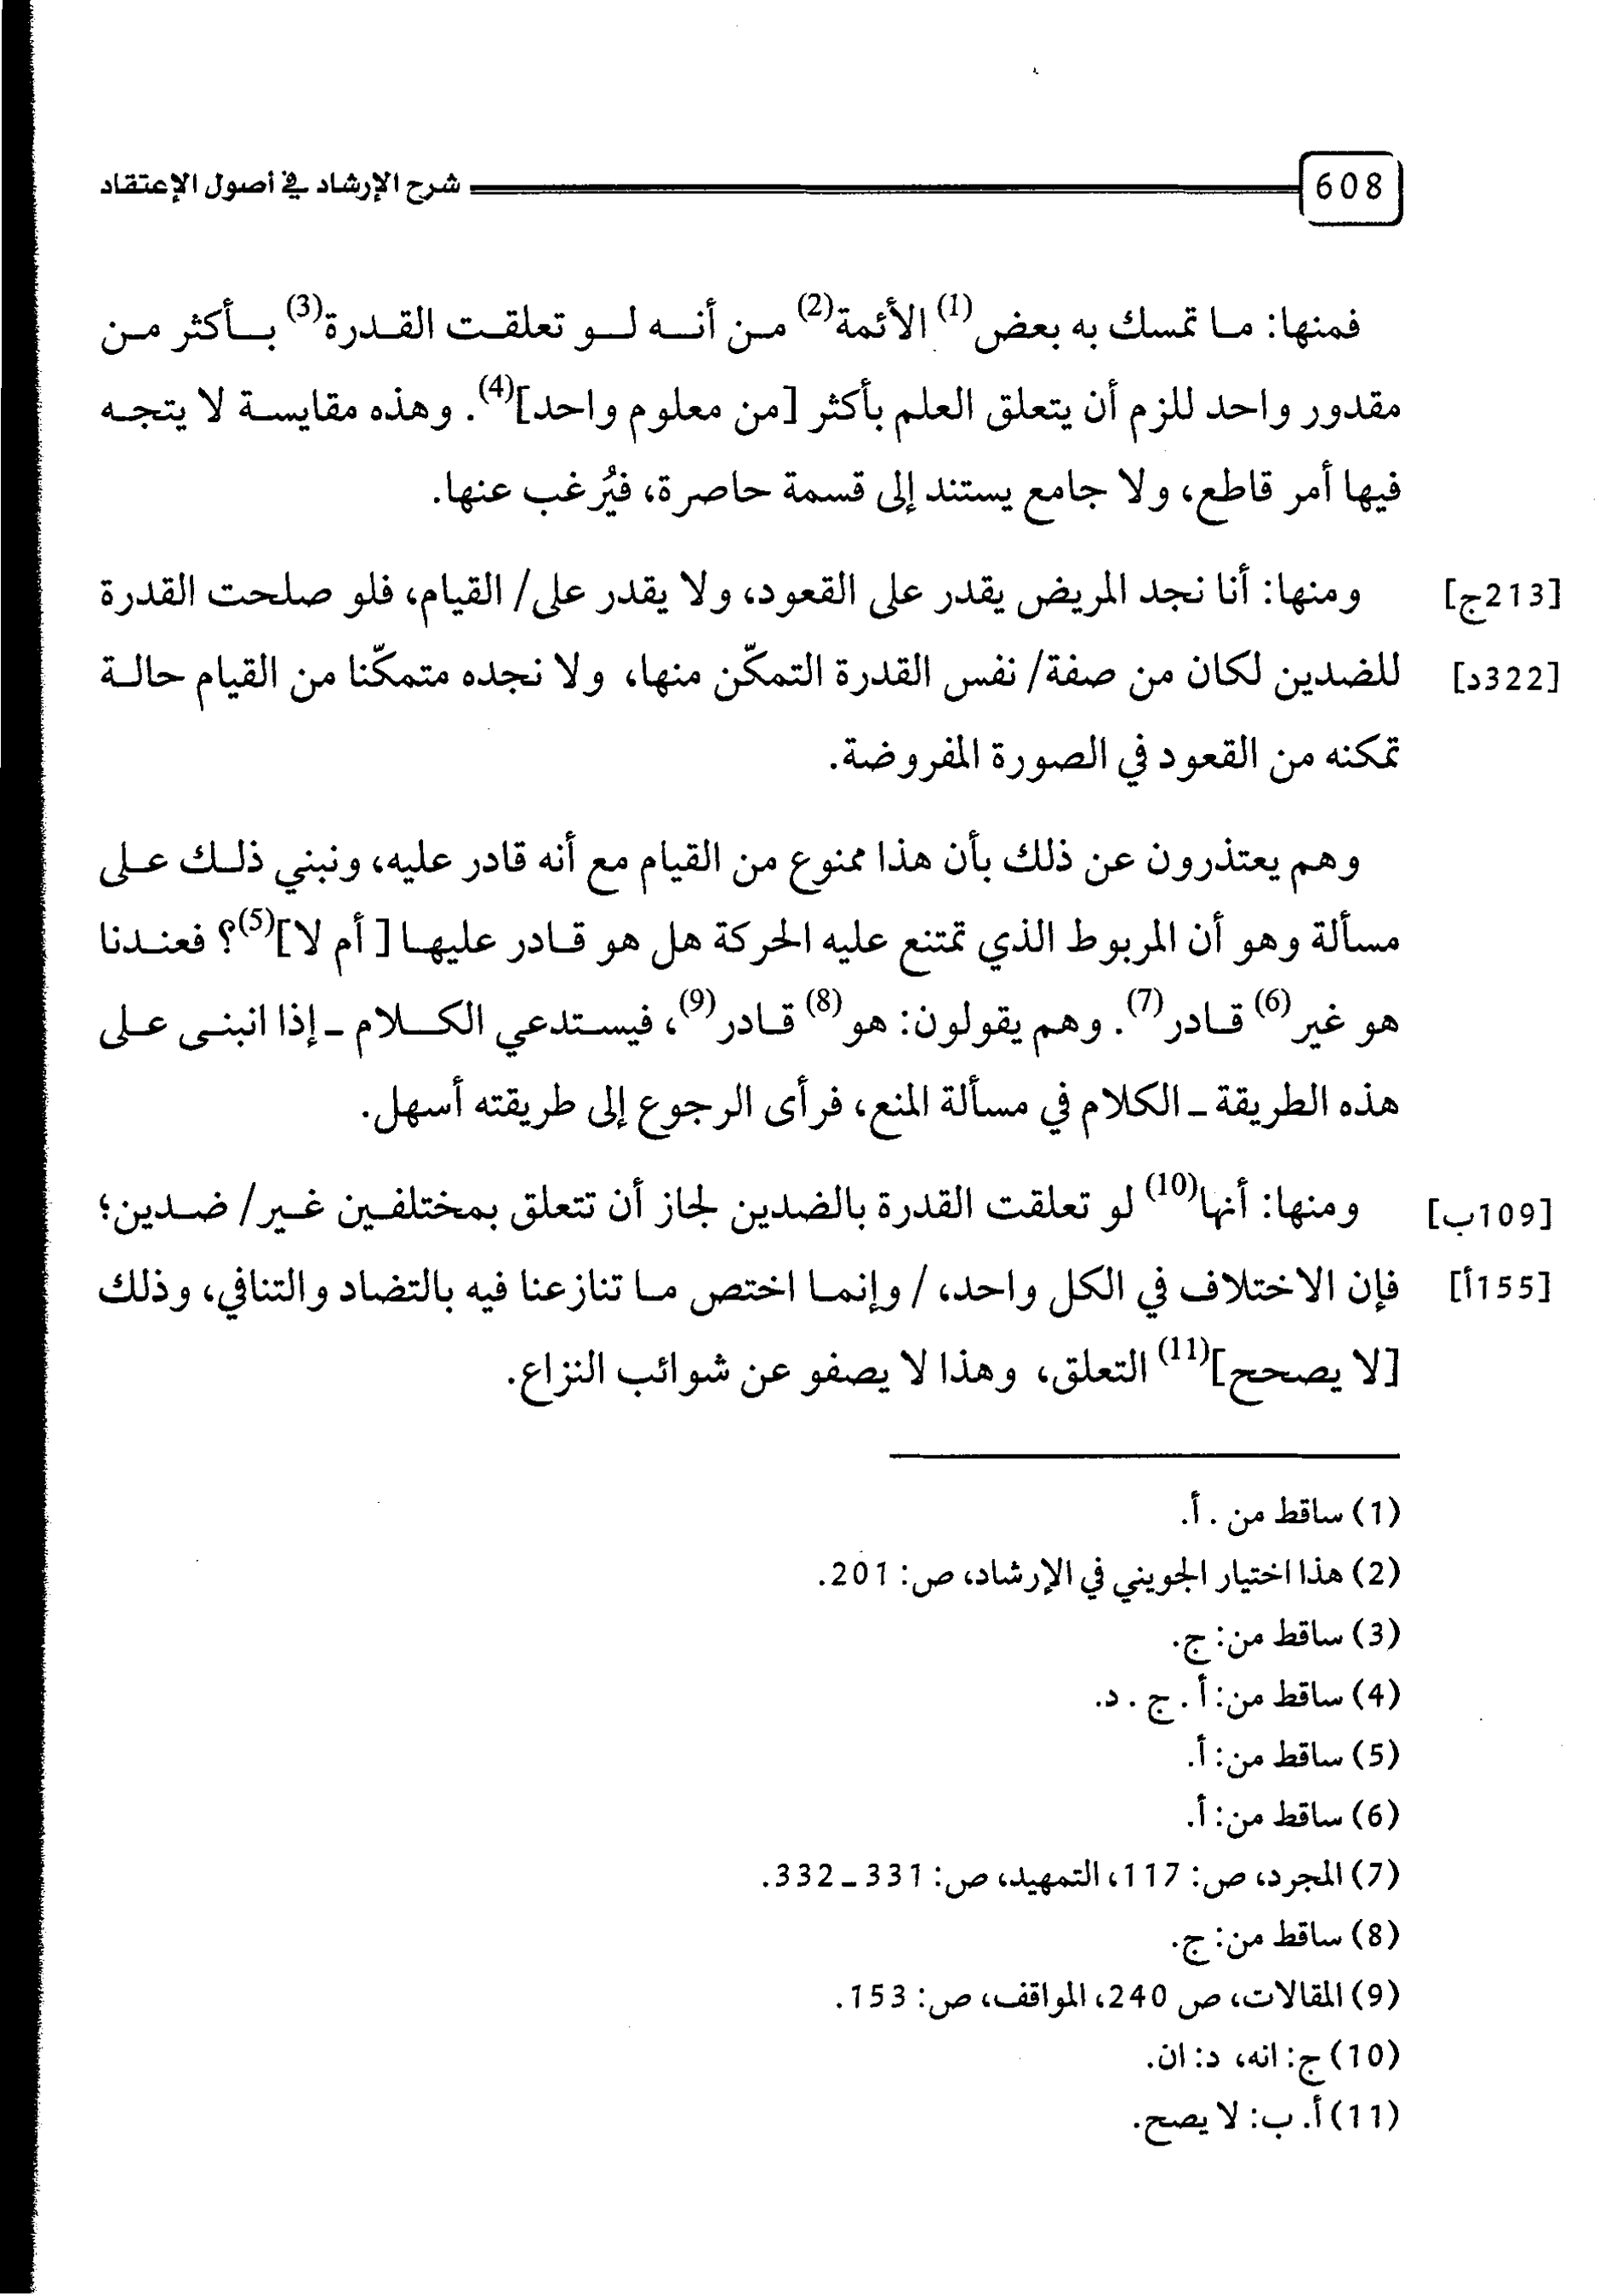 608 شرح الإرشاد في أصول الإعتقاد
فمنها: ما تمسك به بعض(1) الأئمة(2) من أنه لو تعلقت القدرة(3) بأكثر من
مقدور واحد للزم أن يتعلق العلم بأكثر [من معلوم واحد](4). وهذه مقايسة لا يتجه
فيها أمر قاطع، ولا جامع يستند إلى قسمة حاصرة، فيُرغب عنها.
[213ج] ومنها: أنا نجد المريض يقدر على القعود، ولا يقدر على/ القيام، فلو صلحت القدرة
[322د] للضدين لكان من صفة/ نفس القدرة التمكّن منها، ولا نجده متمكّنا من القيام حالة
تمكنه من القعود في الصورة المفروضة.
وهم يعتذرون عن ذلك بأن هذا ممنوع من القيام مع أنه قادر عليه، ونبني ذلك على
مسألة وهو أن المربوط الذي تمتنع عليه الحركة هل هو قادر عليها [ أم لا](5)؟ فعندنا
هو غير(6) قادر(7). وهم يقولون: هو(8) قادر(9)، فيستدعي الكلام - إذا انبنى على
هذه الطريقة - الكلام في مسألة المنع، فرأى الرجوع إلى طريقته أسهل.
[109ب] ومنها: أنها(10) لو تعلقت القدرة بالضدين لجاز أن تتعلق بمختلفين غير/ ضدين؛
[155أ] فإن الاختلاف في الكل واحد، / وإنما اختص ما تنازعنا فيه بالتضاد والتنافي، وذلك
[لا يصحح](11) التعلق، وهذا لا يصفو عن شوائب النزاع.
(1) ساقط من . أ.
(2) هذا اختيار الجويني في الإرشاد، ص: 201.
(3) ساقط من: ج.
(4) ساقط من: أ . ج . د.
(5) ساقط من: أ.
(6) ساقط من: أ.
(7) المجرد، ص: 117، التمهيد، ص: 331 - 332.
(8) ساقط من: ج.
(9) المقالات، ص 240، المواقف، ص: 153.
(10) ج: انه، د: ان.
(11) أ. ب: لا يصح.